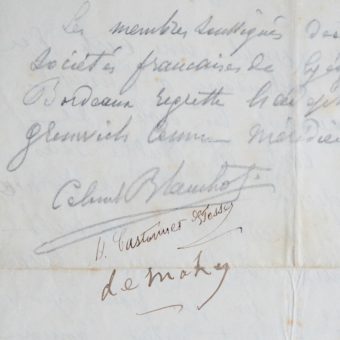 Les membres soussignés des
sociétés françaises de Géo
Bordeaux regrette
greenwich comme méridie
Colonel Blanchot
H. Castonnet des Fosses
de Mahy